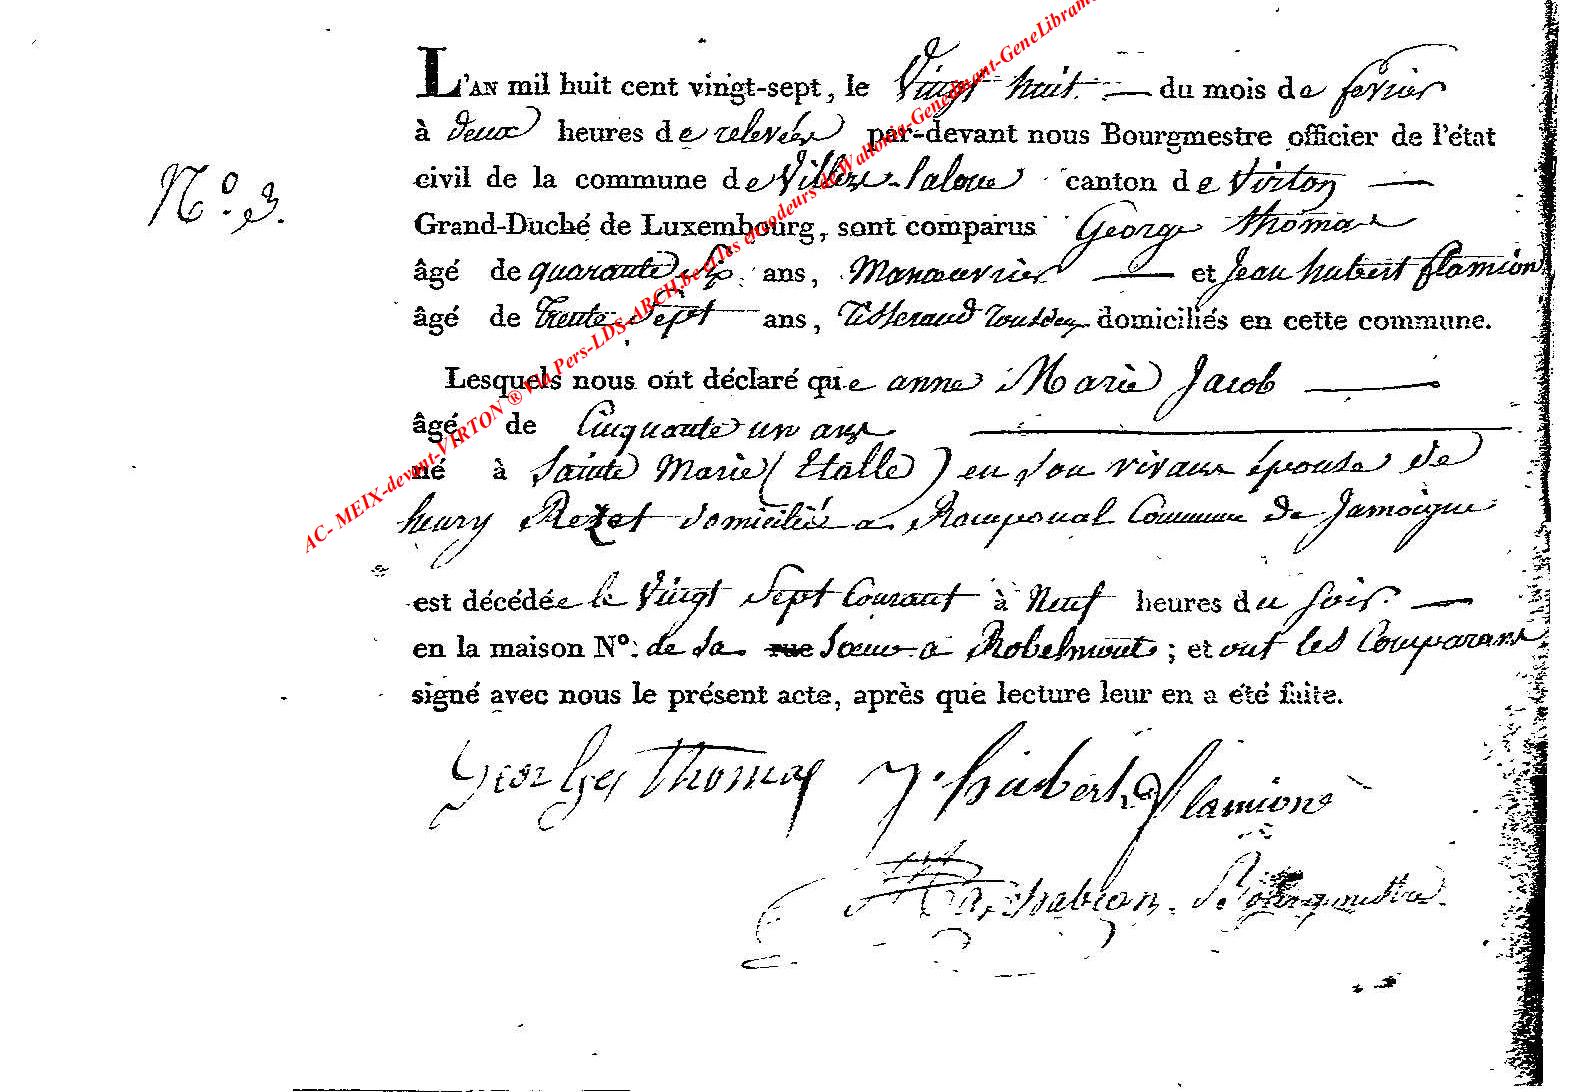 L'AN mil huit cent vingt-sept, le Vingt huit du mois de fevrier
à deux heures de relevée par-devant nous Bourgmestre officier de l'état
civil de la commune de Villers-laloue canton de Virton
N.o 3.
Grand-Duché de Luxembourg, sont comparus George thomas
âgé de quarante ans, Manoeuvrier et Jean hubert flamion
âgé de trente Sept ans, Tisserand tousdeux domiciliés en cette commune.
Lesquels nous ont déclaré que anne Marie Jacob
âgé de Cinquante un ans
né à Sainte Marie (Etalle) en son vivant épouse de
henry Rezet domicilié a Romponcel Commune de Jamoigne
est décédée le Vingt Sept Courant à Neuf heures du soir
en la maison N°: de sa rue soeur a Robelmont; et ont les Comparans
signé avec nous le présent acte, après que lecture leur en a été faite.
Georges thomas J. hubert flamion
Bourgmestre
AC- MEIX-devant-VIRTON ® Via Pers-LDS-ARCH.be et les encodeurs de Wallonia-Genedinant-GeneLibramo